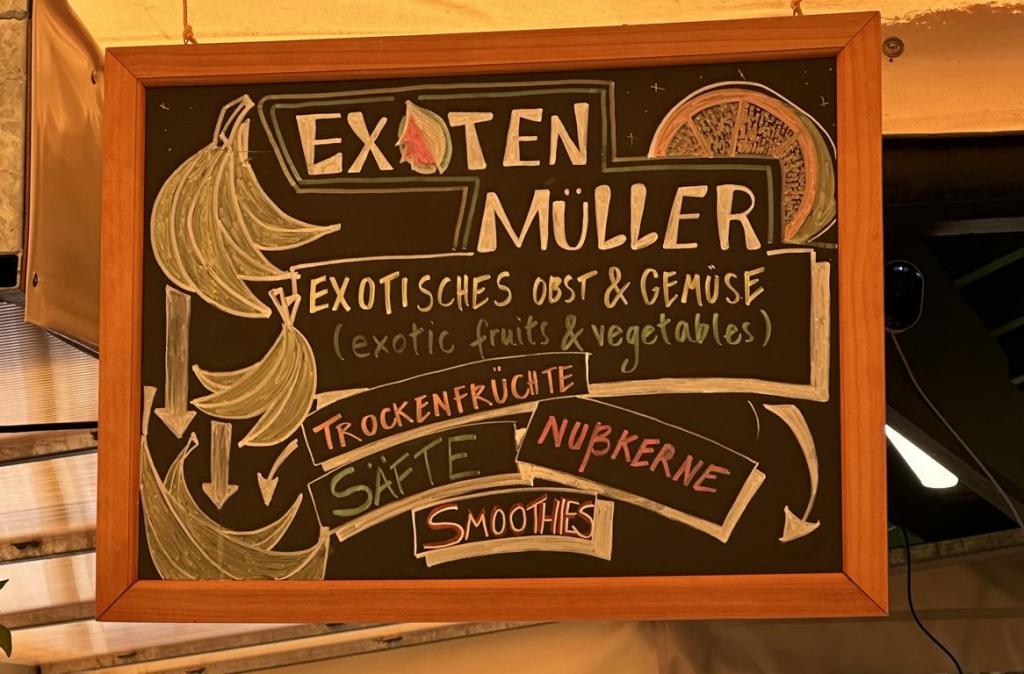 EXOTEN
MÜLLER
EXOTISCHES OBST & GEMÜSE
(exotic fruits & vegetables)
TROCKENFRÜCHTE
NUßKERNE
SÄFTE
SMOOTHIES